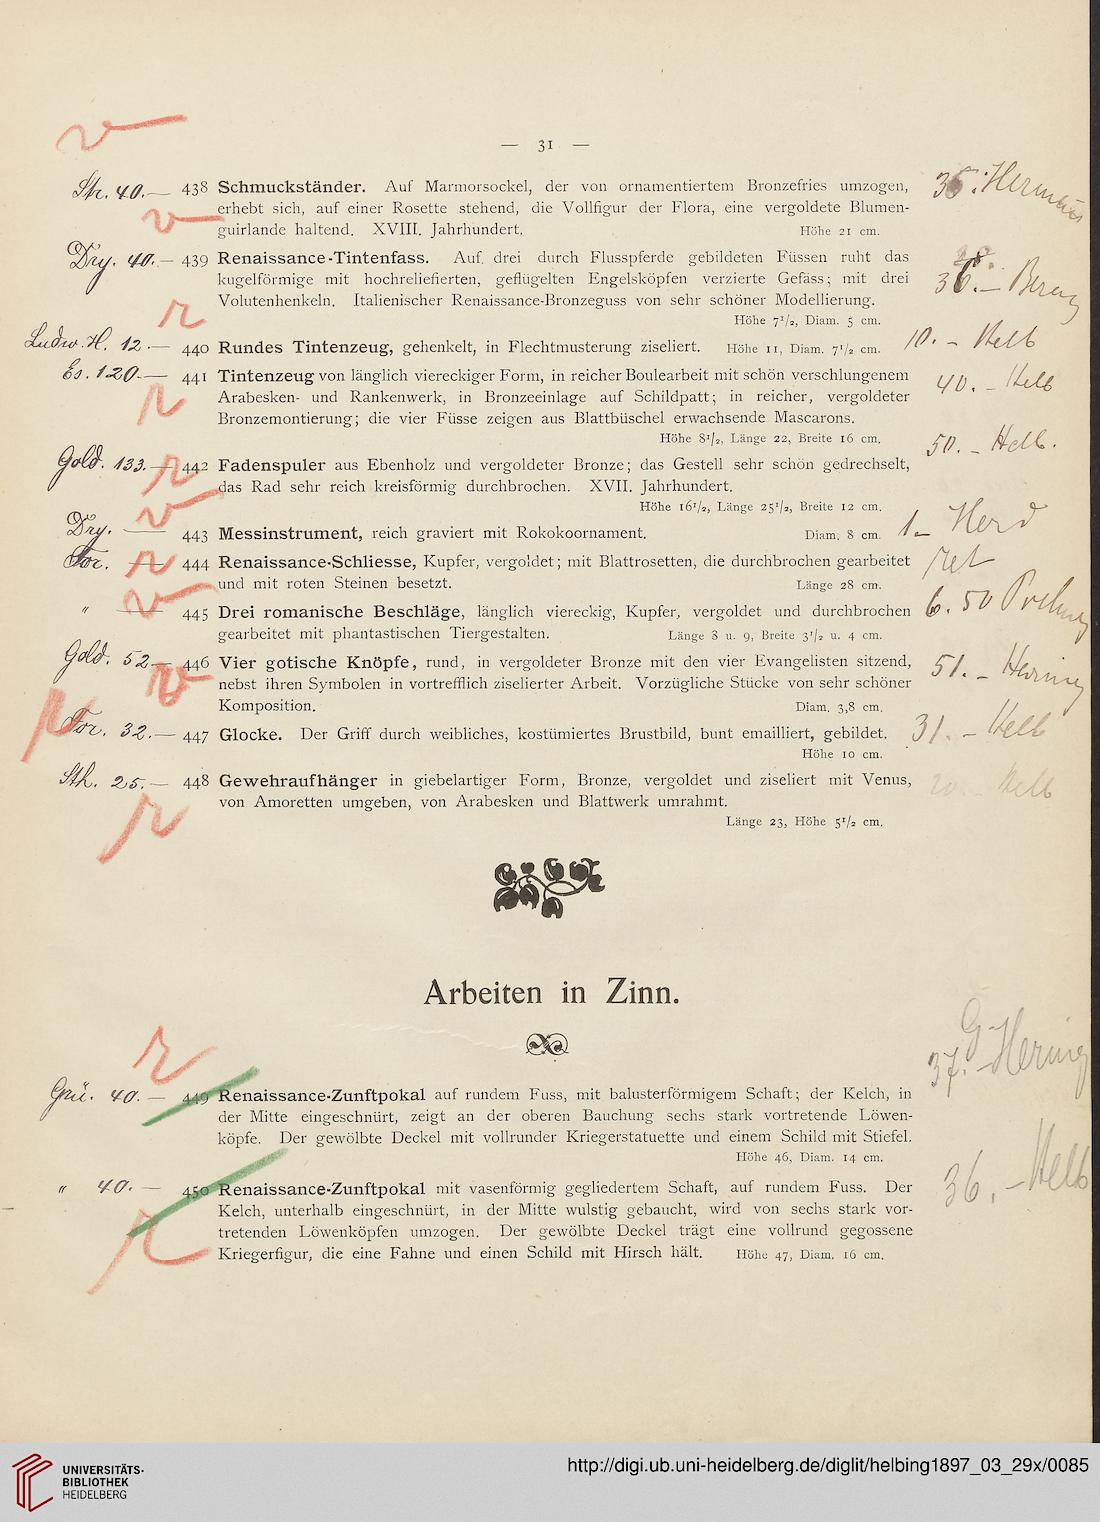 — 31 —
Str. 40.— 438 Schmuckständer. Auf Marmorsockel, der von ornamentiertem Bronzefries umzogen,
erhebt sich, auf einer Rosette stehend, die Vollfigur der Flora, eine vergoldete Blumen-
guirlande haltend. XVIII. Jahrhundert. Höhe 21 cm.
Dry. 40.— 439 Renaissance-Tintenfass. Auf drei durch Flusspferde gebildeten Füssen ruht das
kugelförmige mit hochreliefierten, geflügelten Engelsköpfen verzierte Gefäss; mit drei
Volutenhenkeln. Italienischer Renaissance-Bronzeguss von sehr schöner Modellierung.
Höhe 7½, Diam. 5 cm.
Ludw. H. 12.— 440 Rundes Tintenzeug, gehenkelt, in Flechtmusterung ziseliert. Höhe 11, Diam. 7½ cm. 10. – Helb
Es. 120.— 441 Tintenzeug von länglich viereckiger Form, in reicher Boulearbeit mit schön verschlungenem 40. – Helb
Arabesken- und Rankenwerk, in Bronzeeinlage auf Schildpatt; in reicher, vergoldeter
Bronzemontierung; die vier Füsse zeigen aus Blattbüschel erwachsende Mascarons.
Höhe 8½, Länge 22, Breite 16 cm.
Gold. 133.— 442 Fadenspuler aus Ebenholz und vergoldeter Bronze; das Gestell sehr schön gedrechselt, 50. – Helb.
das Rad sehr reich kreisförmig durchbrochen. XVII. Jahrhundert.
Höhe 16½, Länge 25½, Breite 12 cm.
Dry. — 443 Messinstrument, reich graviert mit Rokokoornament. Diam. 8 cm. 1.–
For. — 444 Renaissance-Schliesse, Kupfer, vergoldet; mit Blattrosetten, die durchbrochen gearbeitet ret
und mit roten Steinen besetzt. Länge 28 cm.
" — 445 Drei romanische Beschläge, länglich viereckig, Kupfer, vergoldet und durchbrochen 6. 50
gearbeitet mit phantastischen Tiergestalten. Länge 8 u. 9, Breite 3½ u. 4 cm.
Gold. 52.— 446 Vier gotische Knöpfe, rund, in vergoldeter Bronze mit den vier Evangelisten sitzend, 51. – Hering
nebst ihren Symbolen in vortrefflich ziselierter Arbeit. Vorzügliche Stücke von sehr schöner
Komposition. Diam. 3,8 cm.
For. 32.— 447 Glocke. Der Griff durch weibliches, kostümiertes Brustbild, bunt emailliert, gebildet. 31. – Helb
Höhe 10 cm.
Sth. 25.— 448 Gewehraufhänger in giebelartiger Form, Bronze, vergoldet und ziseliert mit Venus, 20. – Helb
von Amoretten umgeben, von Arabesken und Blattwerk umrahmt.
Länge 23, Höhe 5½ cm.
Arbeiten in Zinn.
Grü. 40.— 449 Renaissance-Zunftpokal auf rundem Fuss, mit balusterförmigem Schaft; der Kelch, in 37. – G. Hering
der Mitte eingeschnürt, zeigt an der oberen Bauchung sechs stark vortretende Löwen-
köpfe. Der gewölbte Deckel mit vollrunder Kriegerstatuette und einem Schild mit Stiefel.
Höhe 46, Diam. 14 cm.
" 40.— 450 Renaissance-Zunftpokal mit vasenförmig gegliedertem Schaft, auf rundem Fuss. Der 36. – Helb
Kelch, unterhalb eingeschnürt, in der Mitte wulstig gebaucht, wird von sechs stark vor-
tretenden Löwenköpfen umzogen. Der gewölbte Deckel trägt eine vollrund gegossene
Kriegerfigur, die eine Fahne und einen Schild mit Hirsch hält. Höhe 47, Diam. 16 cm.
UNIVERSITÄTS-
BIBLIOTHEK
HEIDELBERG
http://digi.ub.uni-heidelberg.de/diglit/helbing1897_03_29x/0085